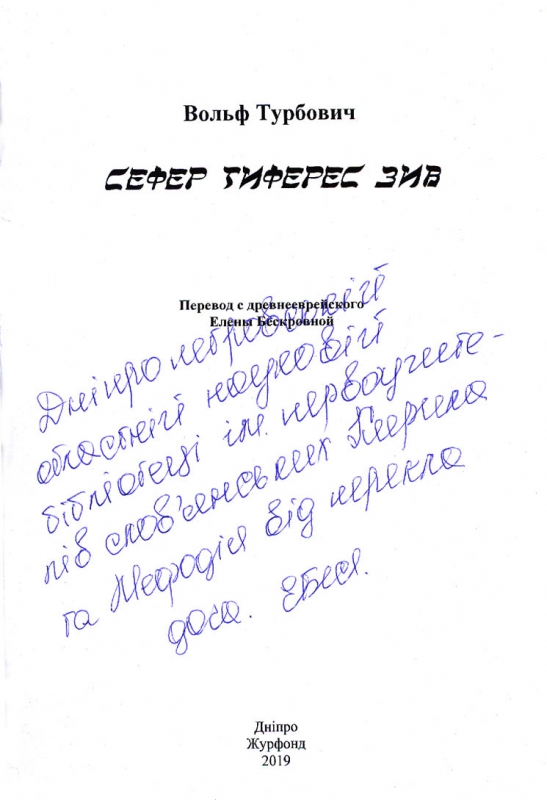 Вольф Турбович
СЕФЕР ТИФЕРЕС ЗИВ
Перевод с древнееврейского
Елены Бескровной
Дніпропетровській
обласній науковій
бібліотеці ім. первоучите-
лів слов'янських Кирила
та Мефодія від перекла
дача.
Дніпро
Журфонд
2019